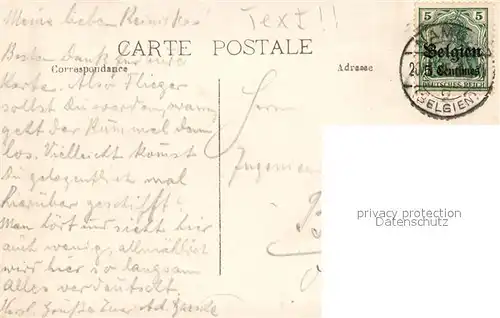 Meine lieben
Text!!
CARTE POSTALE
Correspondance
Adresse
5 5
Belgien
5 Centimes
DEUTSCHES REICH
(BELGIEN)
Besten Dank für eure
Karte. Also Flieger
sollst Du werden, wann
geht der Rummel denn
los. Vielleicht kommst
Du gelegentlich mal
hierüber geschifft.
Man hört und sieht hier
auch wenig, allmählich
wird hier so langsam
alles verdeutscht.
Herzl. Grüße Euer Ad.
Herrn
privacy protection
Datenschutz